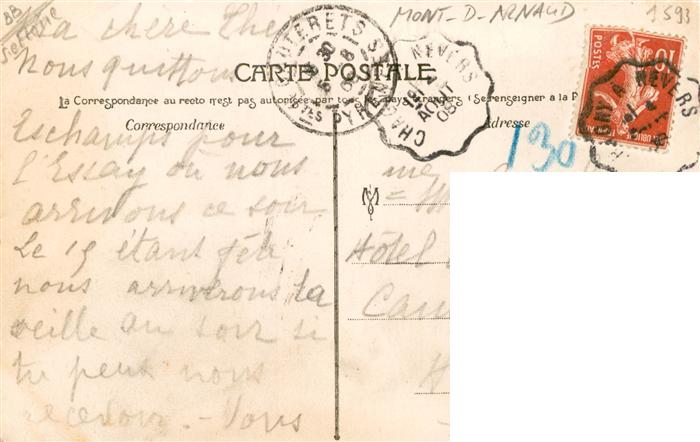 BB
MONT-D-ARNAUD
1593
Ma chère
Nous quittons
CAUTERETS
PYRENEES
CHAGNY A NEVERS
AOUT
08
POSTES
10
CARTE POSTALE
La Correspondance au recto n'est pas autorisée par tous les pays étrangers (Se renseigner à la P
Correspondance
Adresse
130
Eschamps pour
l'Essay où nous
arrivons ce soir
Le 15 étant fête
nous arriverons la
veille au soir si
tu peux nous
recevoir. - Vous
Hôtel